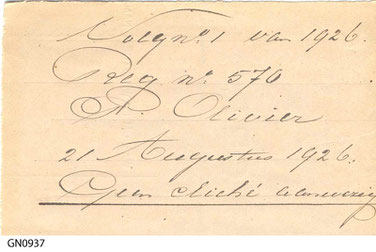 Volg nº. 1 van 1926.
Reg nº 570
A. Olivier
21 Augustus 1926.
Geen cliché aanwezig
GN0937